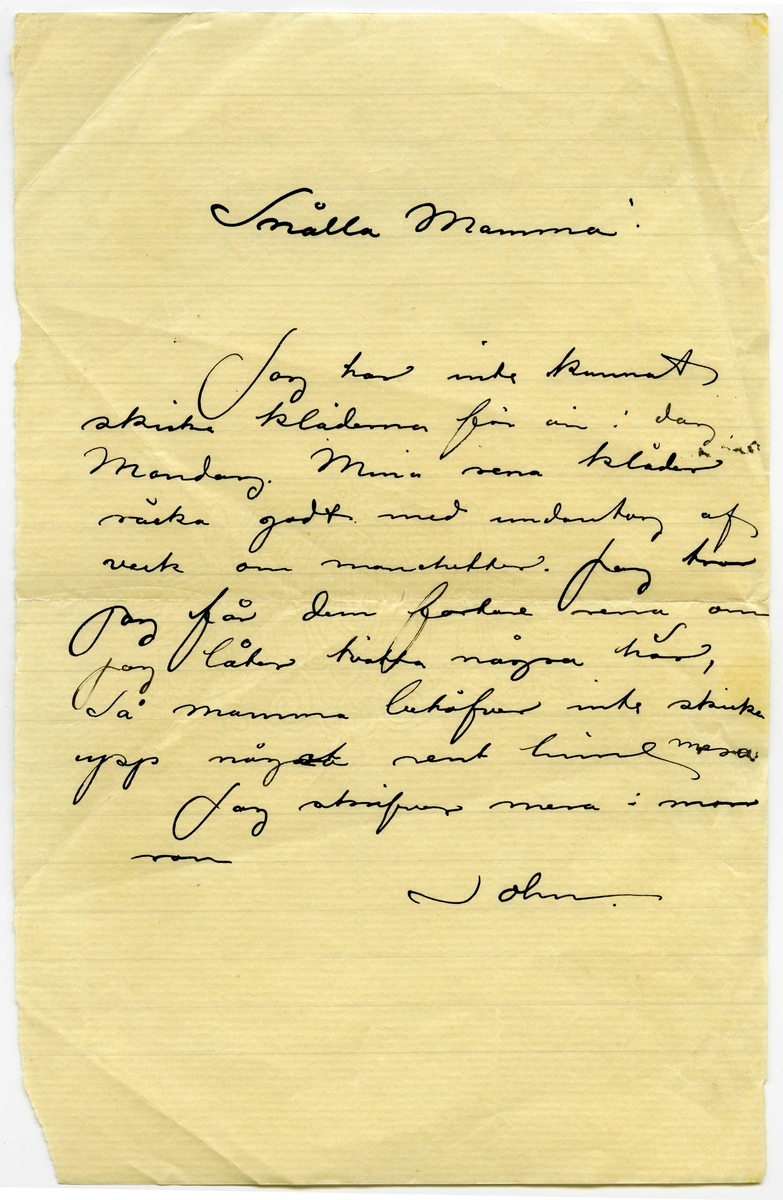 Snälla Mamma!
Jag har inte kunnat
skicka kläderna för än i dag
Mondag. Mina rena kläder
räcka godt med undantag af
veck om manchetter. Jag tror
jag får dem fortare rena om
jag låter tvätta några här,
Så mamma behöfver inte skicka
upp något rent linne mera
Jag skrifver mera i mor
ron
John.